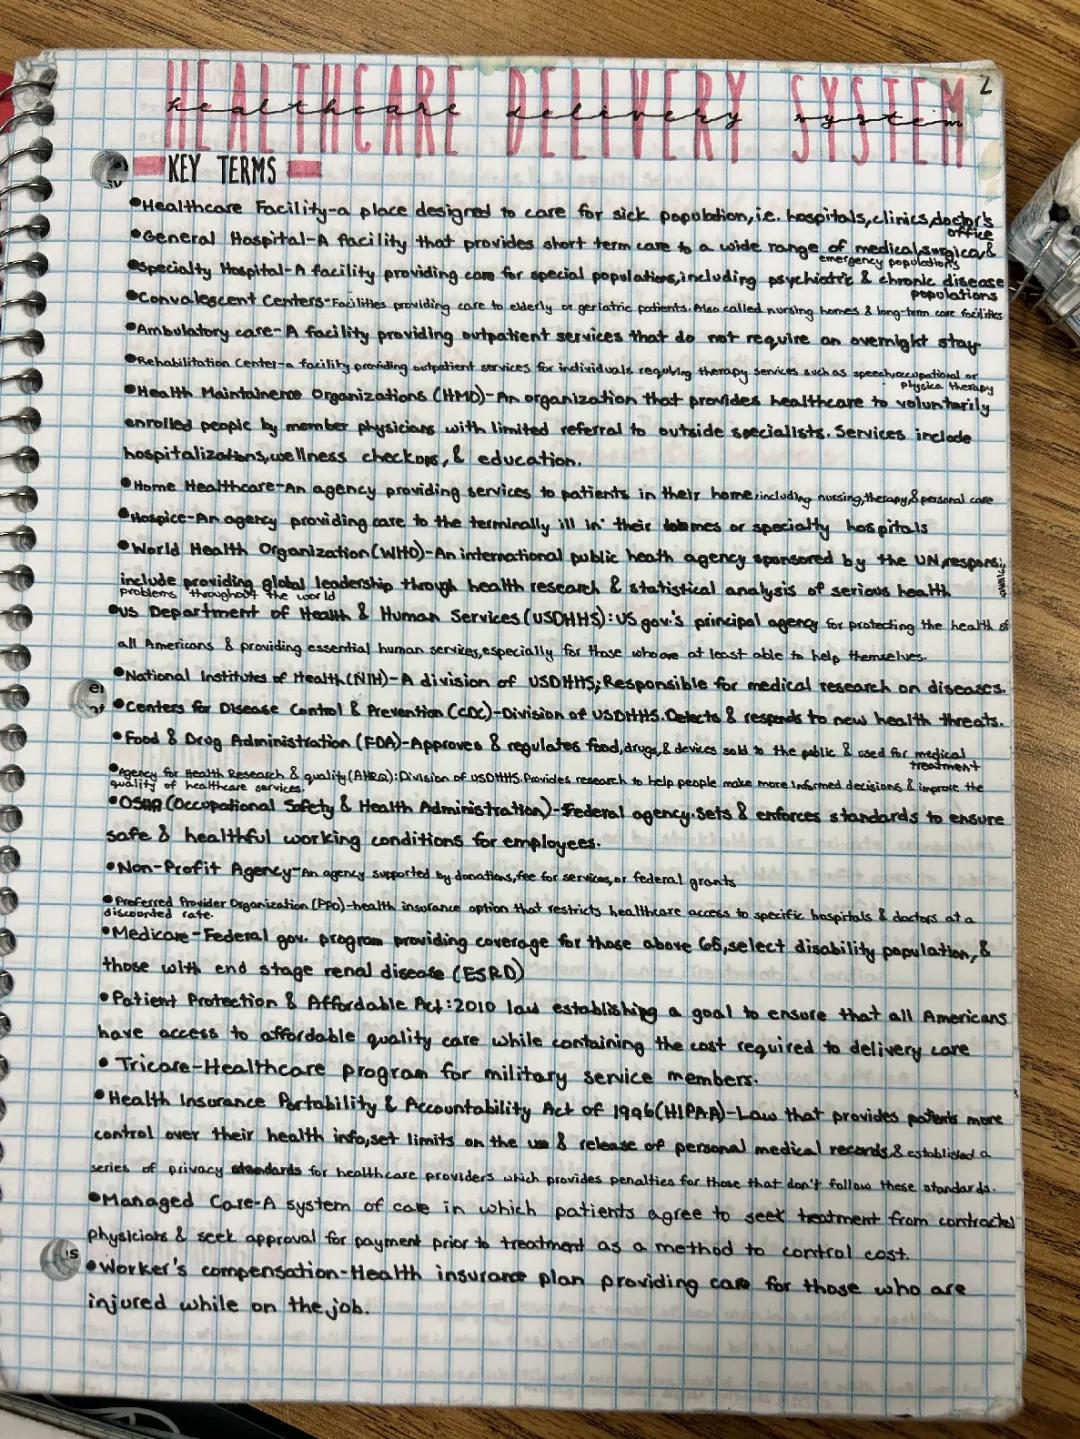 HEALTHCARE DELIVERY SYSTEM
healthcare delivery system
2
KEY TERMS
•Healthcare Facility-a place designed to care for sick population, i.e. hospitals, clinics, doctor's office
•General Hospital-A facility that provides short term care to a wide range of medical, surgical, & emergency populations
•Specialty Hospital-A facility providing care for special populations, including psychiatric & chronic disease populations
•Convalescent Centers-Facilities providing care to elderly or geriatric patients. Also called nursing homes & long-term care facilities
•Ambulatory care-A facility providing outpatient services that do not require an overnight stay.
•Rehabilitation Center-a facility providing outpatient services for individuals requiring therapy services such as speech, occupational or physical therapy
•Health Maintainence Organizations (HMO)-An organization that provides healthcare to voluntarily
enrolled people by member physicians with limited referral to outside specialists. Services include
hospitalizations, wellness checkups, & education.
•Home Healthcare-An agency providing services to patients in their home, including nursing, therapy, & personal care
•Hospice-An agency providing care to the terminally ill in their homes or specialty hospitals
•World Health Organization (WHO)-An international public heath agency sponsored by the UN, respons
include providing global leadership through health research & statistical analysis of serious health
problems throughout the world
•US Department of Health & Human Services (USDHHS): US gov.'s principal agency for protecting the health of
all Americans & providing essential human services, especially for those who are at least able to help themselves.
•National Institutes of Health (NIH)-A division of USDHHS; Responsible for medical research on diseases.
•Centers for Disease Control & Prevention (CDC)-Division of USDHHS. Detects & responds to new health threats.
•Food & Drug Administration (FDA)-Approves & regulates food, drugs, & devices sold to the public & used for medical treatment
•Agency for Health Research & quality (AHRQ): Division of USDHHS. Provides research to help people make more informed decisions & improve the
quality of healthcare services.
•OSHA (Occupational Safety & Health Administration)-Federal agency. Sets & enforces standards to ensure
safe & healthful working conditions for employees.
•Non-Profit Agency-An agency supported by donations, fee for services, or federal grants
•Preferred Provider Organization (PPO)-health insurance option that restricts healthcare access to specific hospitals & doctors at a
discounted rate.
•Medicare-Federal gov. program providing coverage for those above 65, select disability population, &
those with end stage renal disease (ESRD)
•Patient Protection & Affordable Act: 2010 law establishing a goal to ensure that all Americans
have access to affordable quality care while containing the cost required to delivery care
•Tricare-Healthcare program for military service members.
•Health Insurance Portability & Accountability Act of 1996 (HIPAA)-Law that provides patients more
control over their health info, set limits on the use & release of personal medical records, & established a
series of privacy standards for healthcare providers which provides penalties for those that don't follow these standards.
•Managed Care-A system of care in which patients agree to seek treatment from contracted
physicians & seek approval for payment prior to treatment as a method to control cost.
•Worker's compensation-Health insurance plan providing care for those who are
injured while on the job.